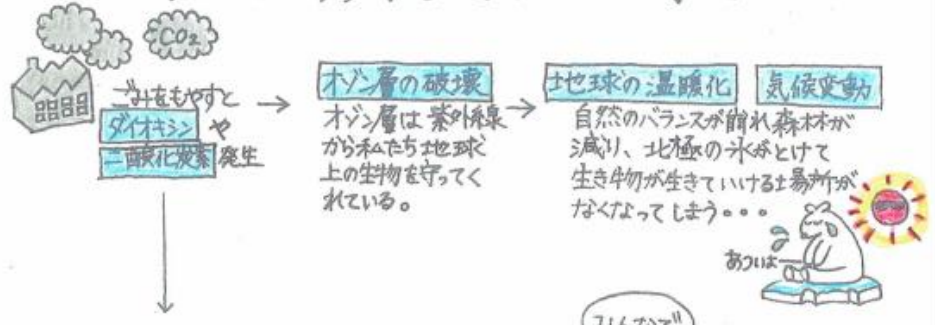 CO₂
ごみをもやすと
ダイオキシン や
二酸化炭素 発生
オゾン層の破壊
オゾン層は紫外線
から私たち地球
上の生物を守ってく
れている。
地球の温暖化
気候変動
自然のバランスが崩れ森林が
減り、北極の氷がとけて
生き物が生きていける場所が
なくなってしまう。。。
あついよー
みんなで